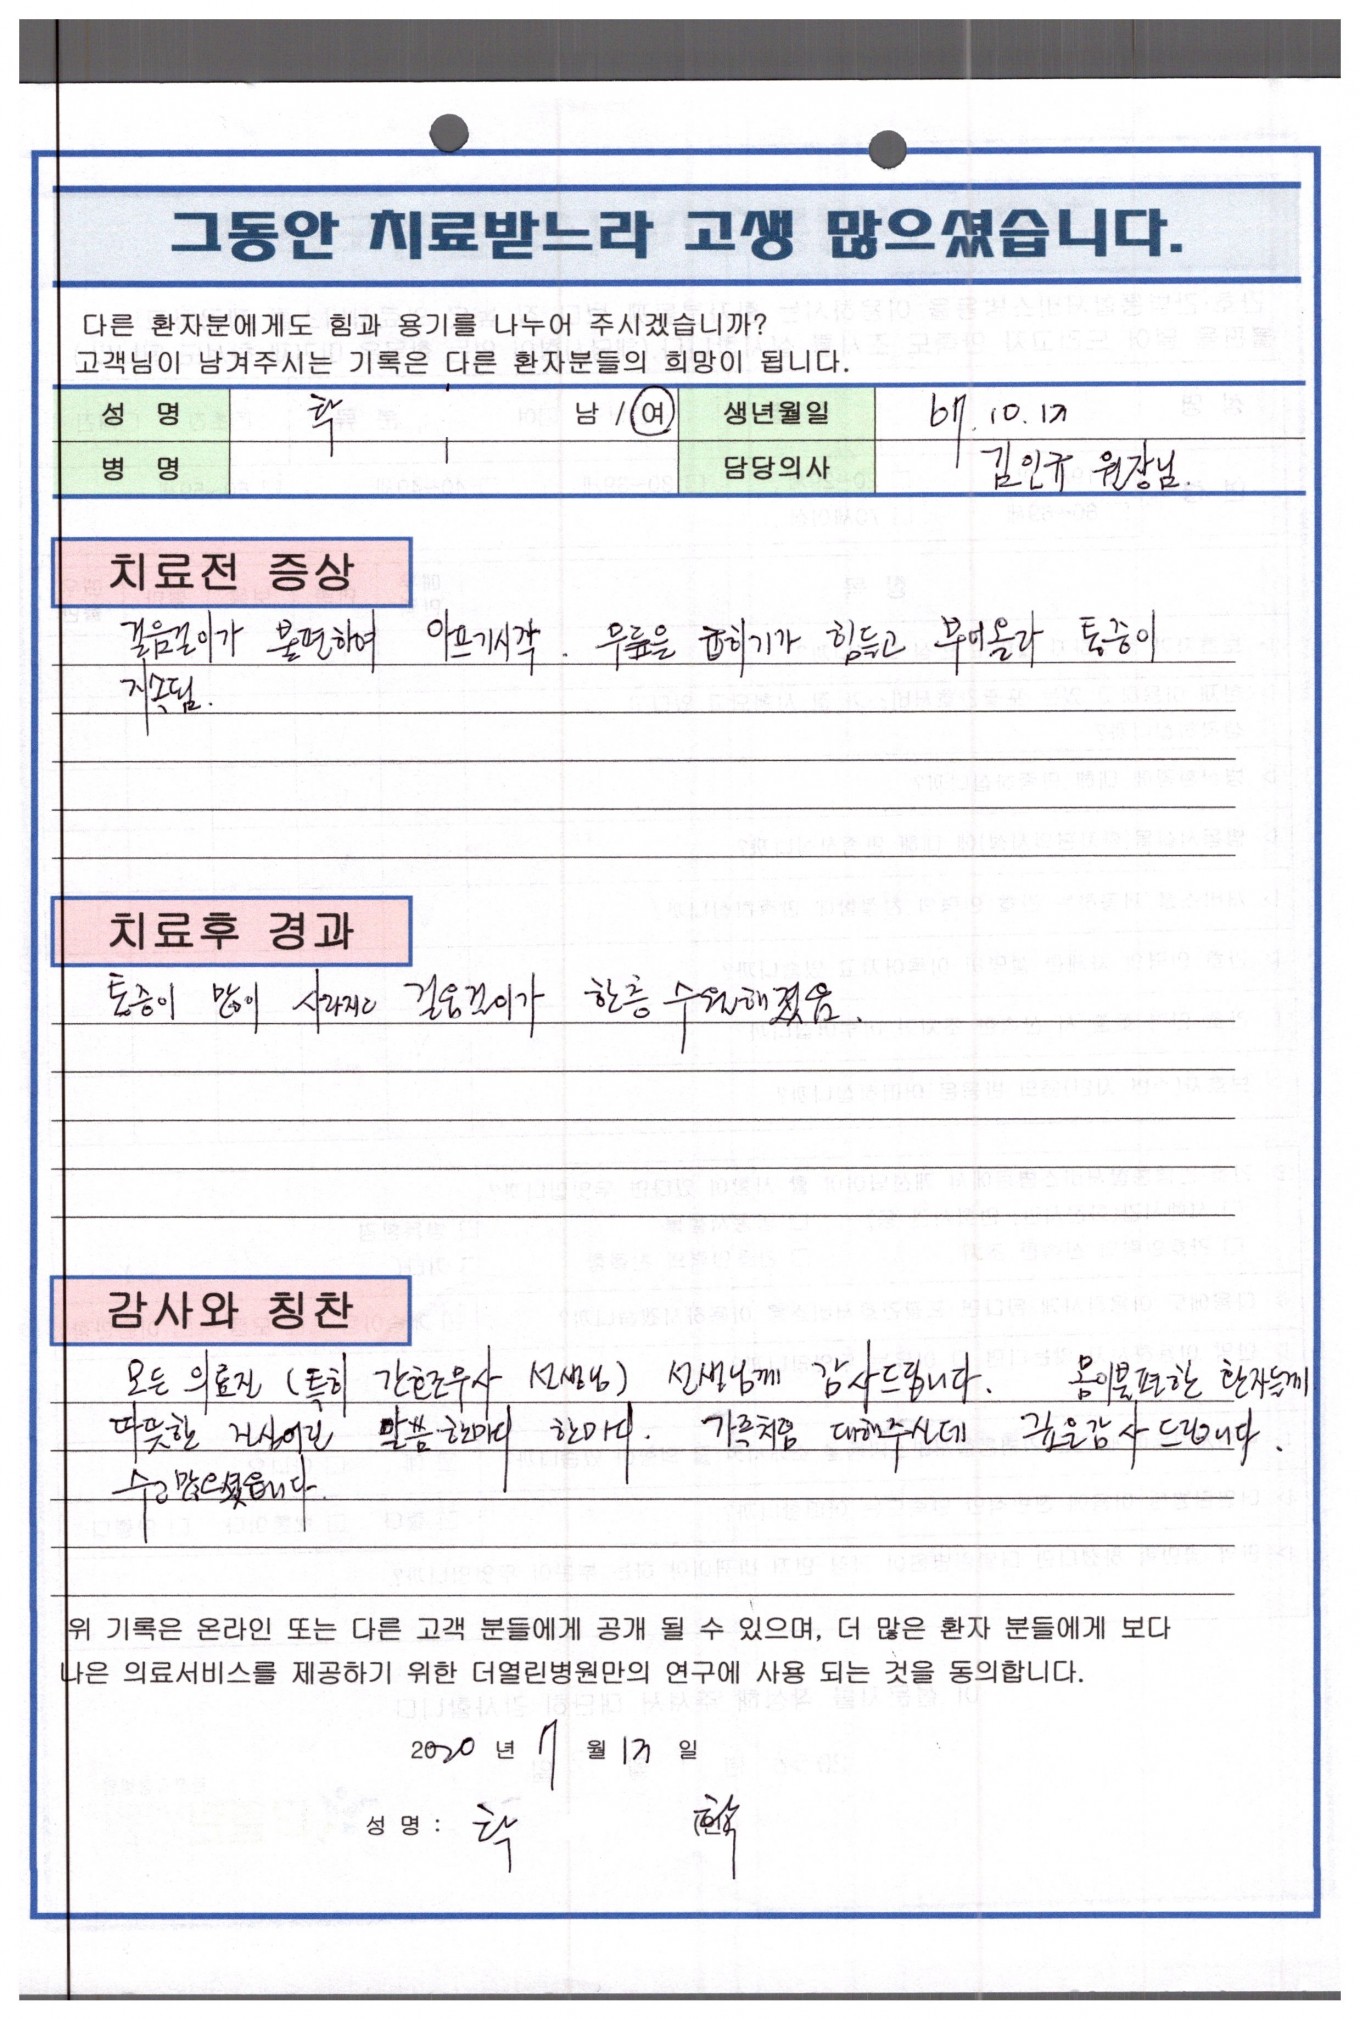 그동안 치료받느라 고생 많으셨습니다.
다른 환자분에게도 힘과 용기를 나누어 주시겠습니까?
고객님이 남겨주시는 기록은 다른 환자분들의 희망이 됩니다.
성 명 학 남 / 여 생년월일 67. 10. 17
병 명 담당의사 김인규 원장님.
치료전 증상
걸음걸이가 불편하여 아프기시작. 무릎을 굽히기가 힘듦고 부어올라 통증이
지속됨.
치료후 경과
통증이 많이 사라지고 걸음걸이가 한층 수월해졌음.
감사와 칭찬
모든 의료진 (특히 간호조무사 선생님) 선생님께 감사드립니다. 몸이불편한 환자들께
따뜻한 말씀 한마디 한마디. 가족처럼 대해주신데 깊은감사 드립니다.
수고많으셨읍니다.
위 기록은 온라인 또는 다른 고객 분들에게 공개 될 수 있으며, 더 많은 환자 분들에게 보다
나은 의료서비스를 제공하기 위한 더열린병원만의 연구에 사용 되는 것을 동의합니다.
2020 년 7 월 17 일
성 명 : 학 학